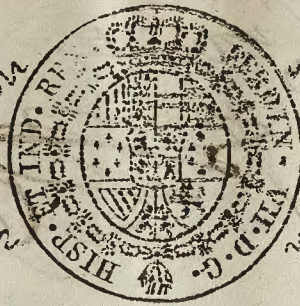 FERDIN · VII · D · G · HISP · ET IND · R